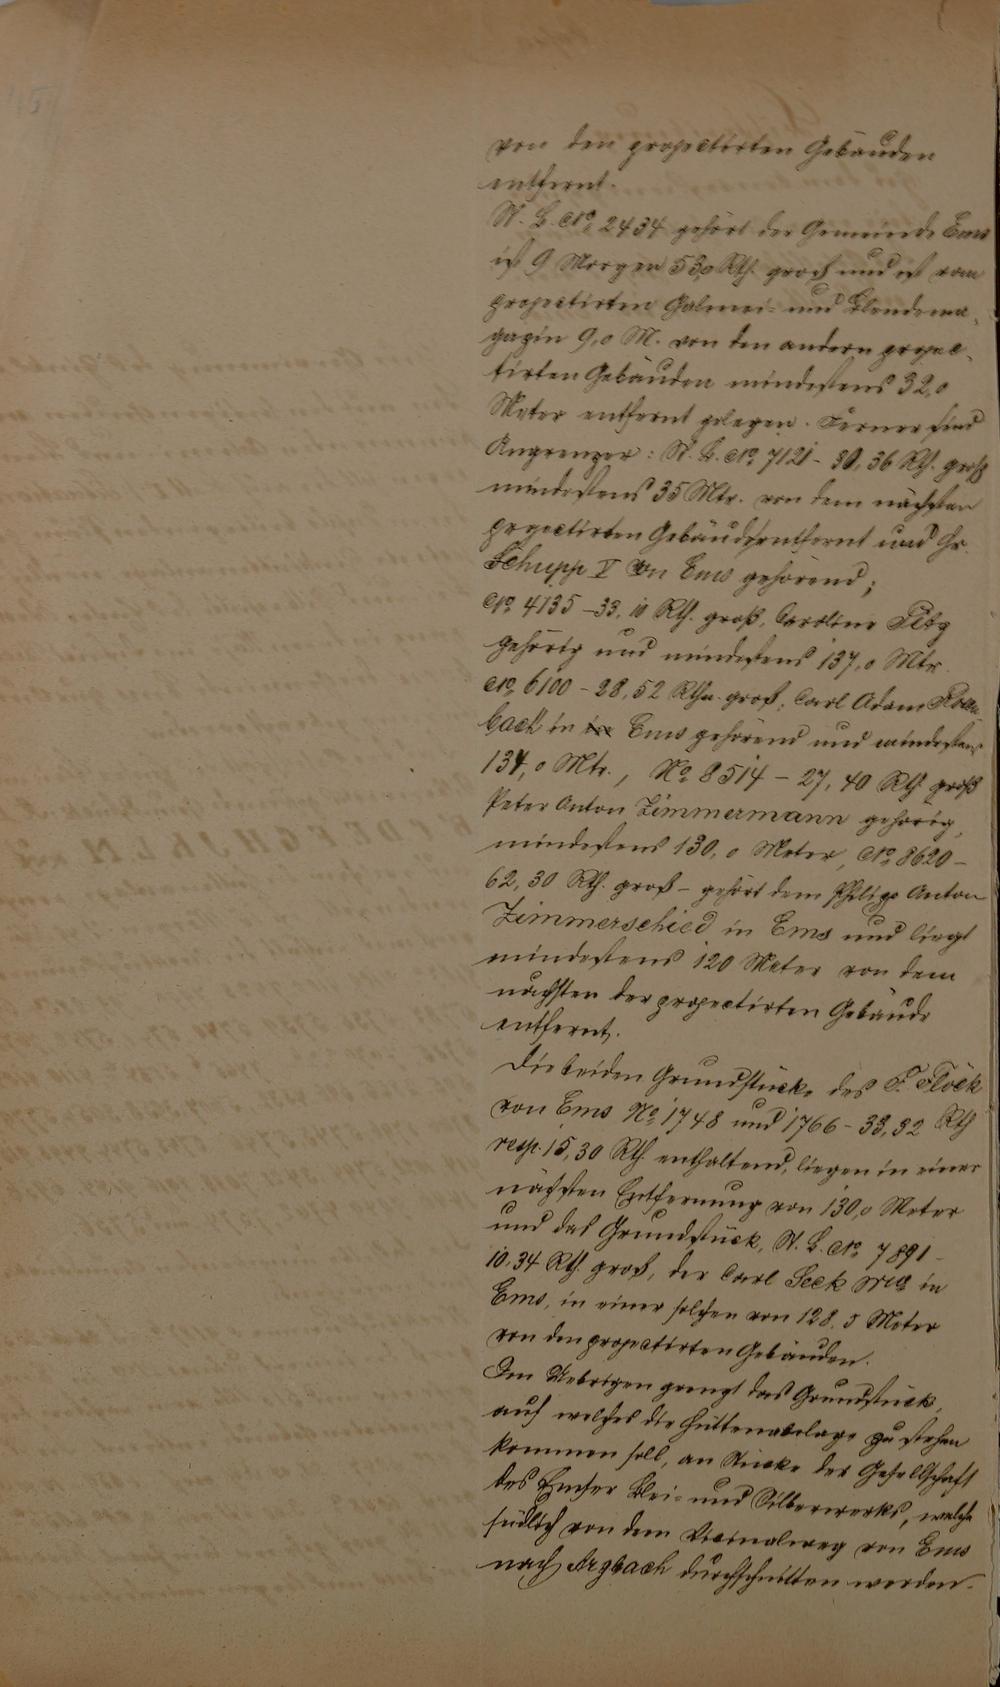 von den projectirten Gebäuden
entfernt.
St. B. No 2434 gehört der Gemeinde Ems
ist 9 Morgen 53,0 Rth. groß und ist vom
projectirten Galmei- und Blendema-
gazin 9,0 M. von den andern projec-
tirten Gebäuden mindestens 32,0
Meter entfernt gelegen. Ferner sind
Angrenzer: St. B. No 7121 - 30,36 Rth. groß
mindestens 35 Mtr. von dem nächsten
projectirten Gebäude entfernt und
Schupp V von Ems gehörend;
No 4135 - 33,10 Rth. groß, Caroline
gehörig und mindestens 137,0 Mtr.
No 6100 - 28,52 Rthn. groß, Carl Adam
bach in Ems gehörend und mindestens
134,0 Mtr., No 8514 - 27,40 Rth. groß
Peter Anton Zimmermann gehörig,
mindestens 130,0 Meter, No 8620 -
62,30 Rth. groß - gehört dem Philipp Anton
Zimmerschied in Ems und liegt
mindestens 120 Meter von dem
nächsten der projectirten Gebäude
entfernt.
Die beiden Grundstücke des F. Flöck
von Ems No 1748 und 1766 - 33,32 Rth
resp. 15,30 Rth. enthaltend, liegen in einer
nächsten Entfernung von 130,0 Meter
und das Grundstück, St. B. No 7891 -
10,34 Rth. groß, der Carl Seck in
Ems, in einer solchen von 128,5 Meter
von den projectirten Gebäuden.
Im Uebrigen grenzt das Grundstück,
auf welches die Hüttenanlage zu stehen
kommen soll, an Stücke der Gesellschaft
des Emser Blei- und Silberwerks, welche
südlich von dem Vicinalweg von Ems
nach Arzbach durchschnitten werden.